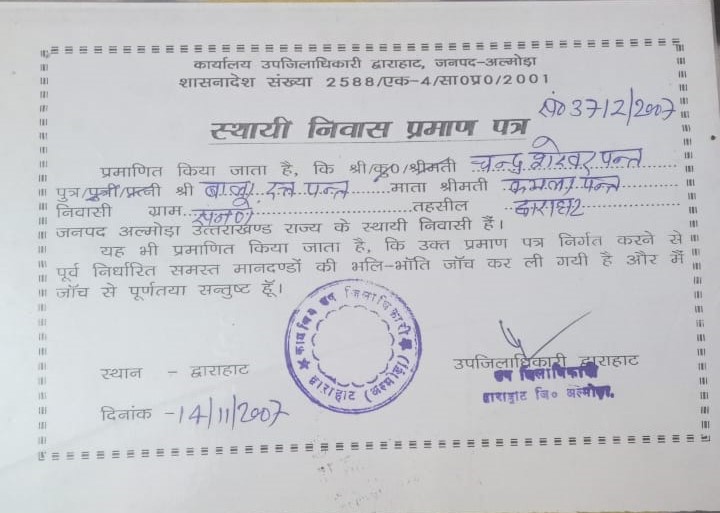 कार्यालय उपजिलाधिकारी द्वाराहाट, जनपद-अल्मोड़ा
शासनादेश संख्या 2588/एक-4/सा0प्र0/2001
स0 3712/2007
स्थायी निवास प्रमाण पत्र
प्रमाणित किया जाता है, कि श्री/कु0/श्रीमती चन्द्र शेखर पन्त
पुत्र/पुत्री/पत्नी श्री दत्त पन्त माता श्रीमती कमला पन्त
निवासी ग्राम तहसील द्वाराहाट
जनपद अल्मोड़ा उत्तराखण्ड राज्य के स्थायी निवासी हैं।
यह भी प्रमाणित किया जाता है, कि उक्त प्रमाण पत्र निर्गत करने से
पूर्व निर्धारित समस्त मानदण्डों की भलि-भाँति जाँच कर ली गयी है और मैं
जाँच से पूर्णतया सन्तुष्ट हूँ।
कार्यालय उप जिलाधिकारी
द्वाराहाट (अल्मोड़ा)
स्थान - द्वाराहाट
उपजिलाधिकारी द्वाराहाट
उप जिलाधिकारी
द्वाराहाट जि० अल्मोड़ा.
दिनांक -14/11/2007